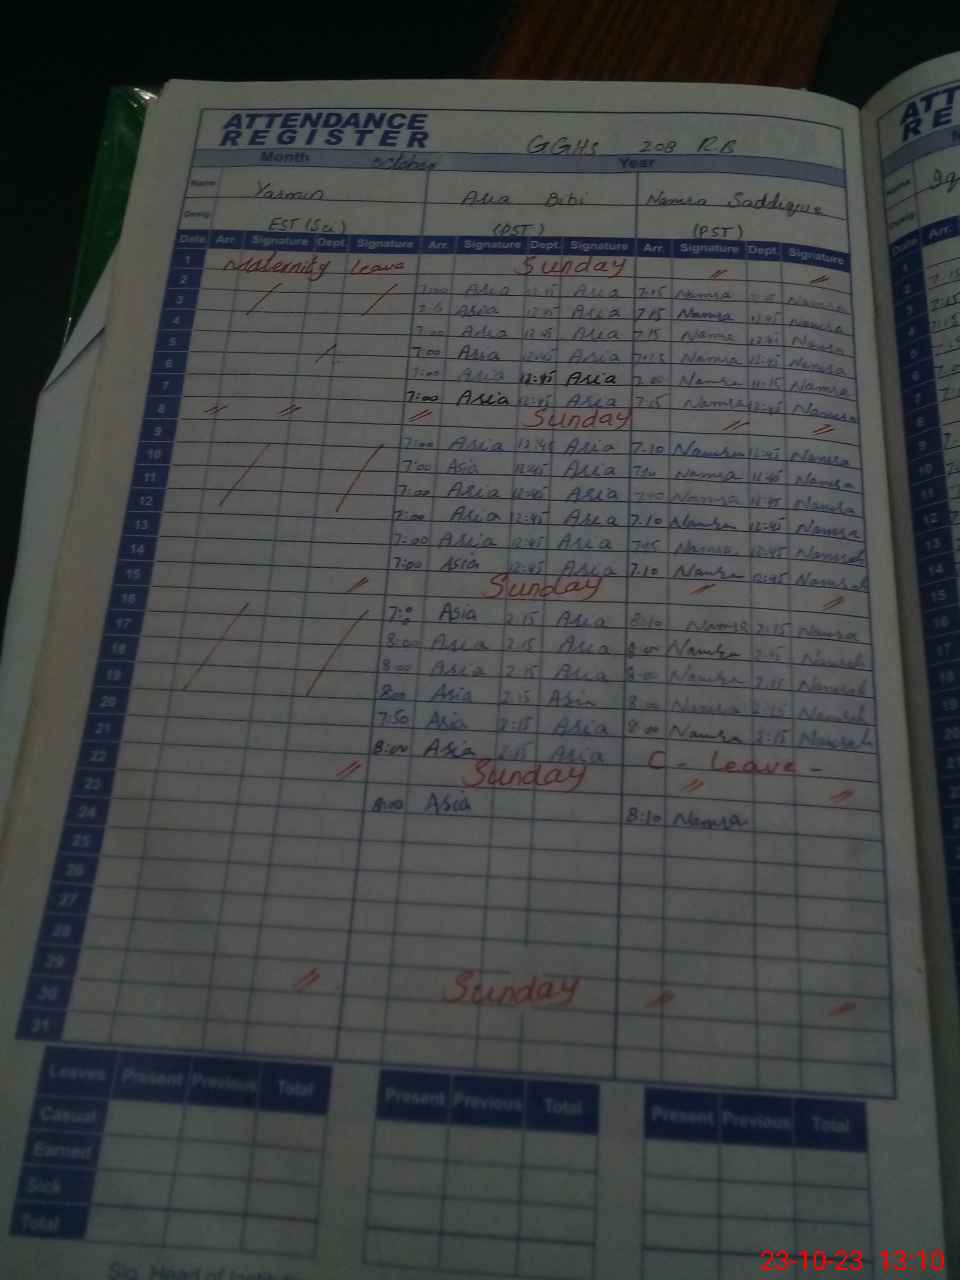 ATTENDANCE
REGISTER
GGHS 208 R.B
Month October Year
Name Yasmin Asia Bibi Namra Saddique
Desig. EST (Sci) (PST) (PST)
Date Arr. Signature Dept. Signature Arr. Signature Dept. Signature Arr. Signature Dept. Signature
1 Maternity Leave Sunday
2 7:00 Asia 12:45 Asia 7:15 Namra Namra
3 Asia 12:45 Asia 7:15 Namra 12:45 Namra
4 7:00 Asia 12:45 Asia 7:15 Namra 12:45 Namra
5 7:00 Asia 12:45 Asia 7:15 Namra 12:45 Namra
6 7:00 Asia 12:45 Asia 7:00 Namra 11:15 Namra
7 7:00 Asia 12:45 Asia 7:15 Namra 12:45 Namra
8 Sunday
9 7:00 Asia 12:45 Asia 7:10 Namra 12:45 Namra
10 7:00 Asia 12:45 Asia Namra 12:45 Namra
11 7:00 Asia 12:45 Asia 7:10 Namra 12:45 Namra
12 7:00 Asia 12:45 Asia 7:10 Namra 12:45 Namra
13 7:00 Asia 12:45 Asia 7:15 Namra 12:45 Namrah
14 7:00 Asia 12:45 Asia 7:10 Namra 12:45 Namrah
15 Sunday
16 Asia 2:15 Asia 8:10 Namra 2:15 Namra
17 8:00 Asia 2:15 Asia 8:00 Namra 2:15 Namrah
18 8:00 Asia 2:15 Asia 8:00 Namra 2:15 Namrah
19 8:00 Asia 2:15 Asia 8:00 Namra 2:15 Namrah
20 7:50 Asia 2:15 Asia 8:00 Namra 2:15 Namrah
21 8:00 Asia 2:15 Asia C - Leave -
22 Sunday
23 8:00 Asia 8:10 Namra
24
25
26
27
28
29 Sunday
30
31
Leaves Present Previous Total Present Previous Total Present Previous Total
Casual
Earned
Sick
Total
Sig. Head of
23-10-23 13:10